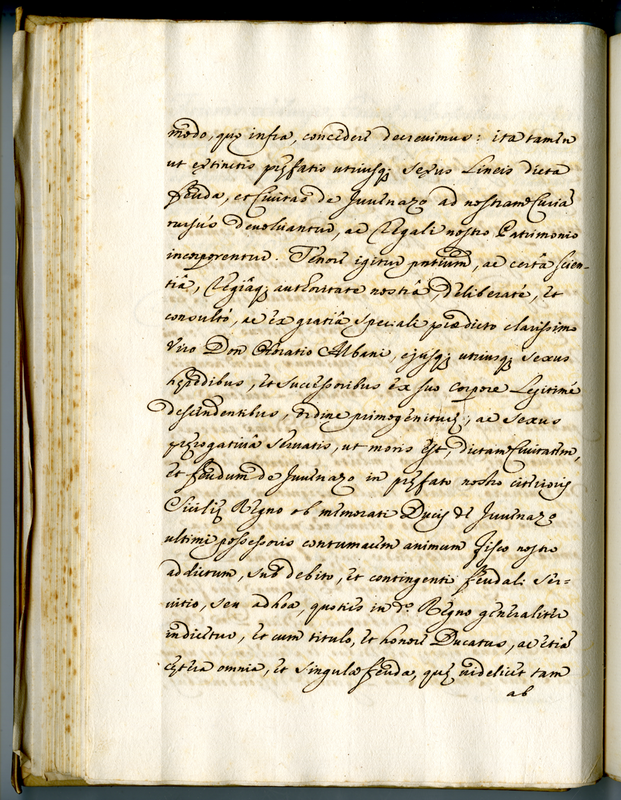 modo, quo infra, concedere decrevimus: ita tamen
ut extinctis pręfatis utriusq; sexus Lineis dicta
feuda, et Civitas de Juvenazo ad nostram Curiã
rursùs devolvantur, ac Regali nostro Patrimonio
incorporentur. Tenore igitur pñtium, ac certâ scien-
tiâ, Regiâq; authoritate nostrâ, deliberatè, et
consultò, ac ex gratiâ speciali prædicto clarissimo
Viro Don Horatio Albani, ejusq; utriusq; sexus
hęredibus, et successoribus ex suo corpore legitimè
descendentibus, ordine primogeniturę, ac sexus
prærogativâ servatis, ut moris est, dictam Civitatem,
et feudum de Juvenazo in pręfato nostro citerioris
Sicilię Regno ob memorati Ducis de Juvenazo
ultimi possessoris contumacem animum fisco nostro
addictum, sub debito, et contingenti feudali ser-
vitio, seu adhoa, quoties in d.º Regno generaliter
indicetur, et cum titulo, et honore Ducatus, ac etiã
cętera omnia, et singula feuda, quę videlicet tam
ab